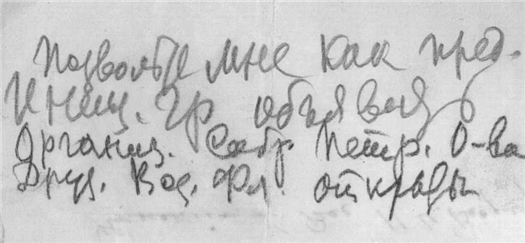 Позвольте мне как пред.
Иниц. Гр объявить
Организ. Собр. Петр. О-ва
Друз. Воз. Фл. открыты